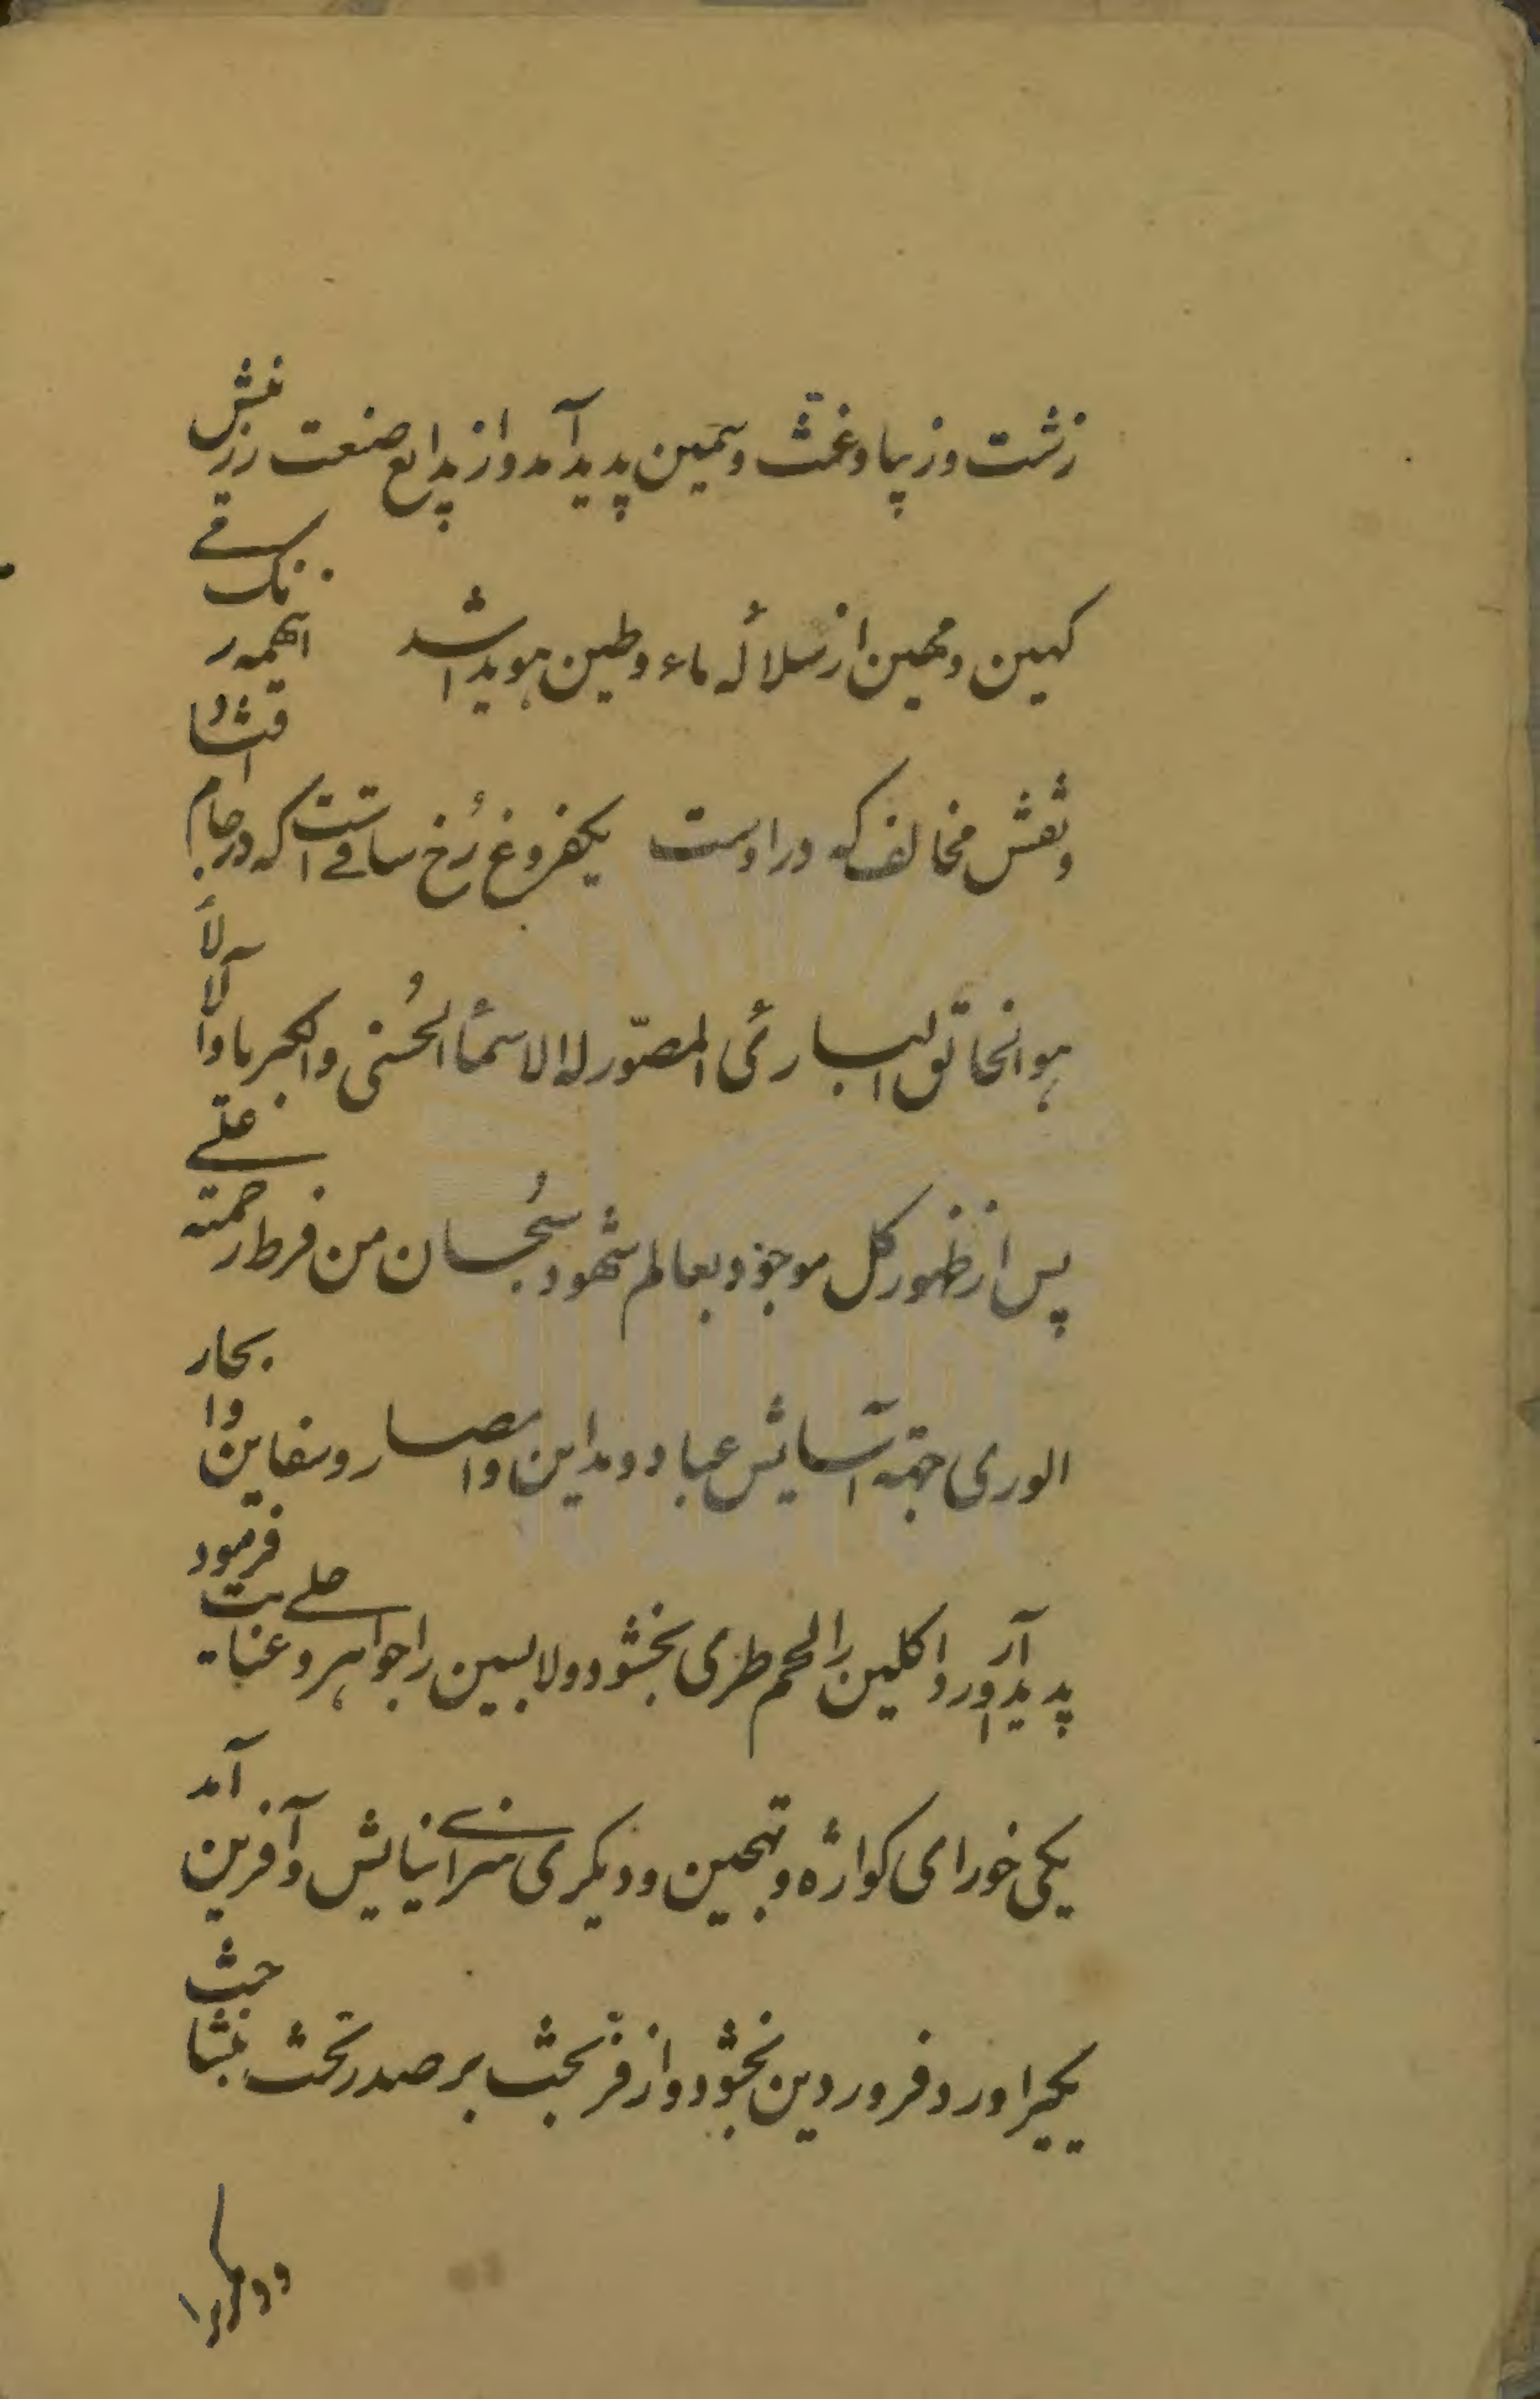 زشت و زیبا و غث و سمین پدید آمد و از بدایع صنعت رزقش
کهین و مهین از سلالهٔ ماء و طین هویدا شد اینهمه رنک
و نقش مخالف که در اوست یکفروغ رخ ساقیست که در جام افتاد
هو الخالق البارئ المصوّر له الاسماء الحُسنی و الکبریا و الآلاء
پس از ظهور کل موجود بعالم شهود سُبحان من فرط رحمته علی
الوری جهته آسایش عباد و مداین و امصار و سفاین و ابحار
پدید آورد لحم طری بخشود و لابسین را جواهر و حلی عنایت فرمود
یکی خورای کواژه و تهجین و دیکری سزای نیایش و آفرین آمد
یکیرا ورد فروردین بخشود و از فرّ بخت بر صدر تخت بنشاخت
و دیگریرا